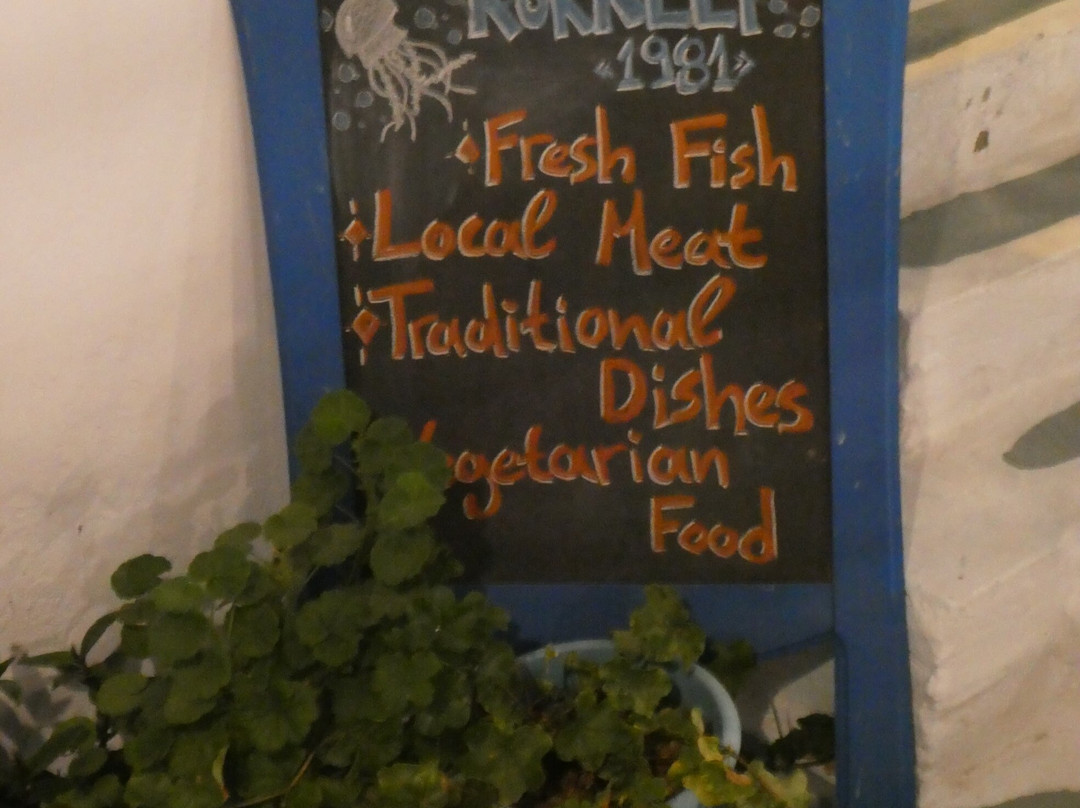 «1981»
Fresh Fish
Local Meat
Traditional
Dishes
Vegetarian
Food